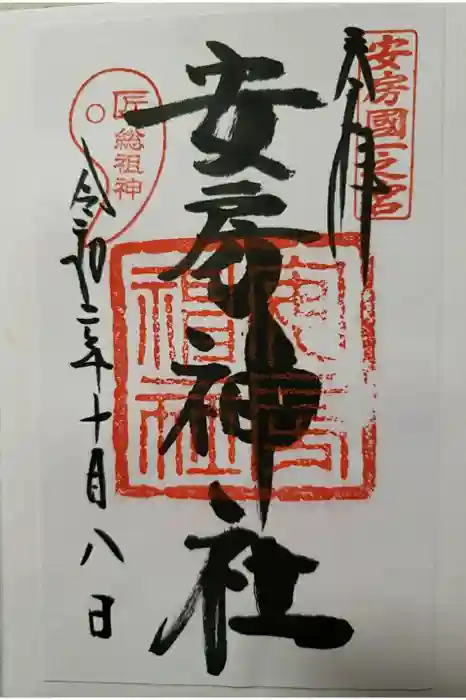 安房國一之宮
奉拝
安房神社
匠総祖神
令和二年十月八日